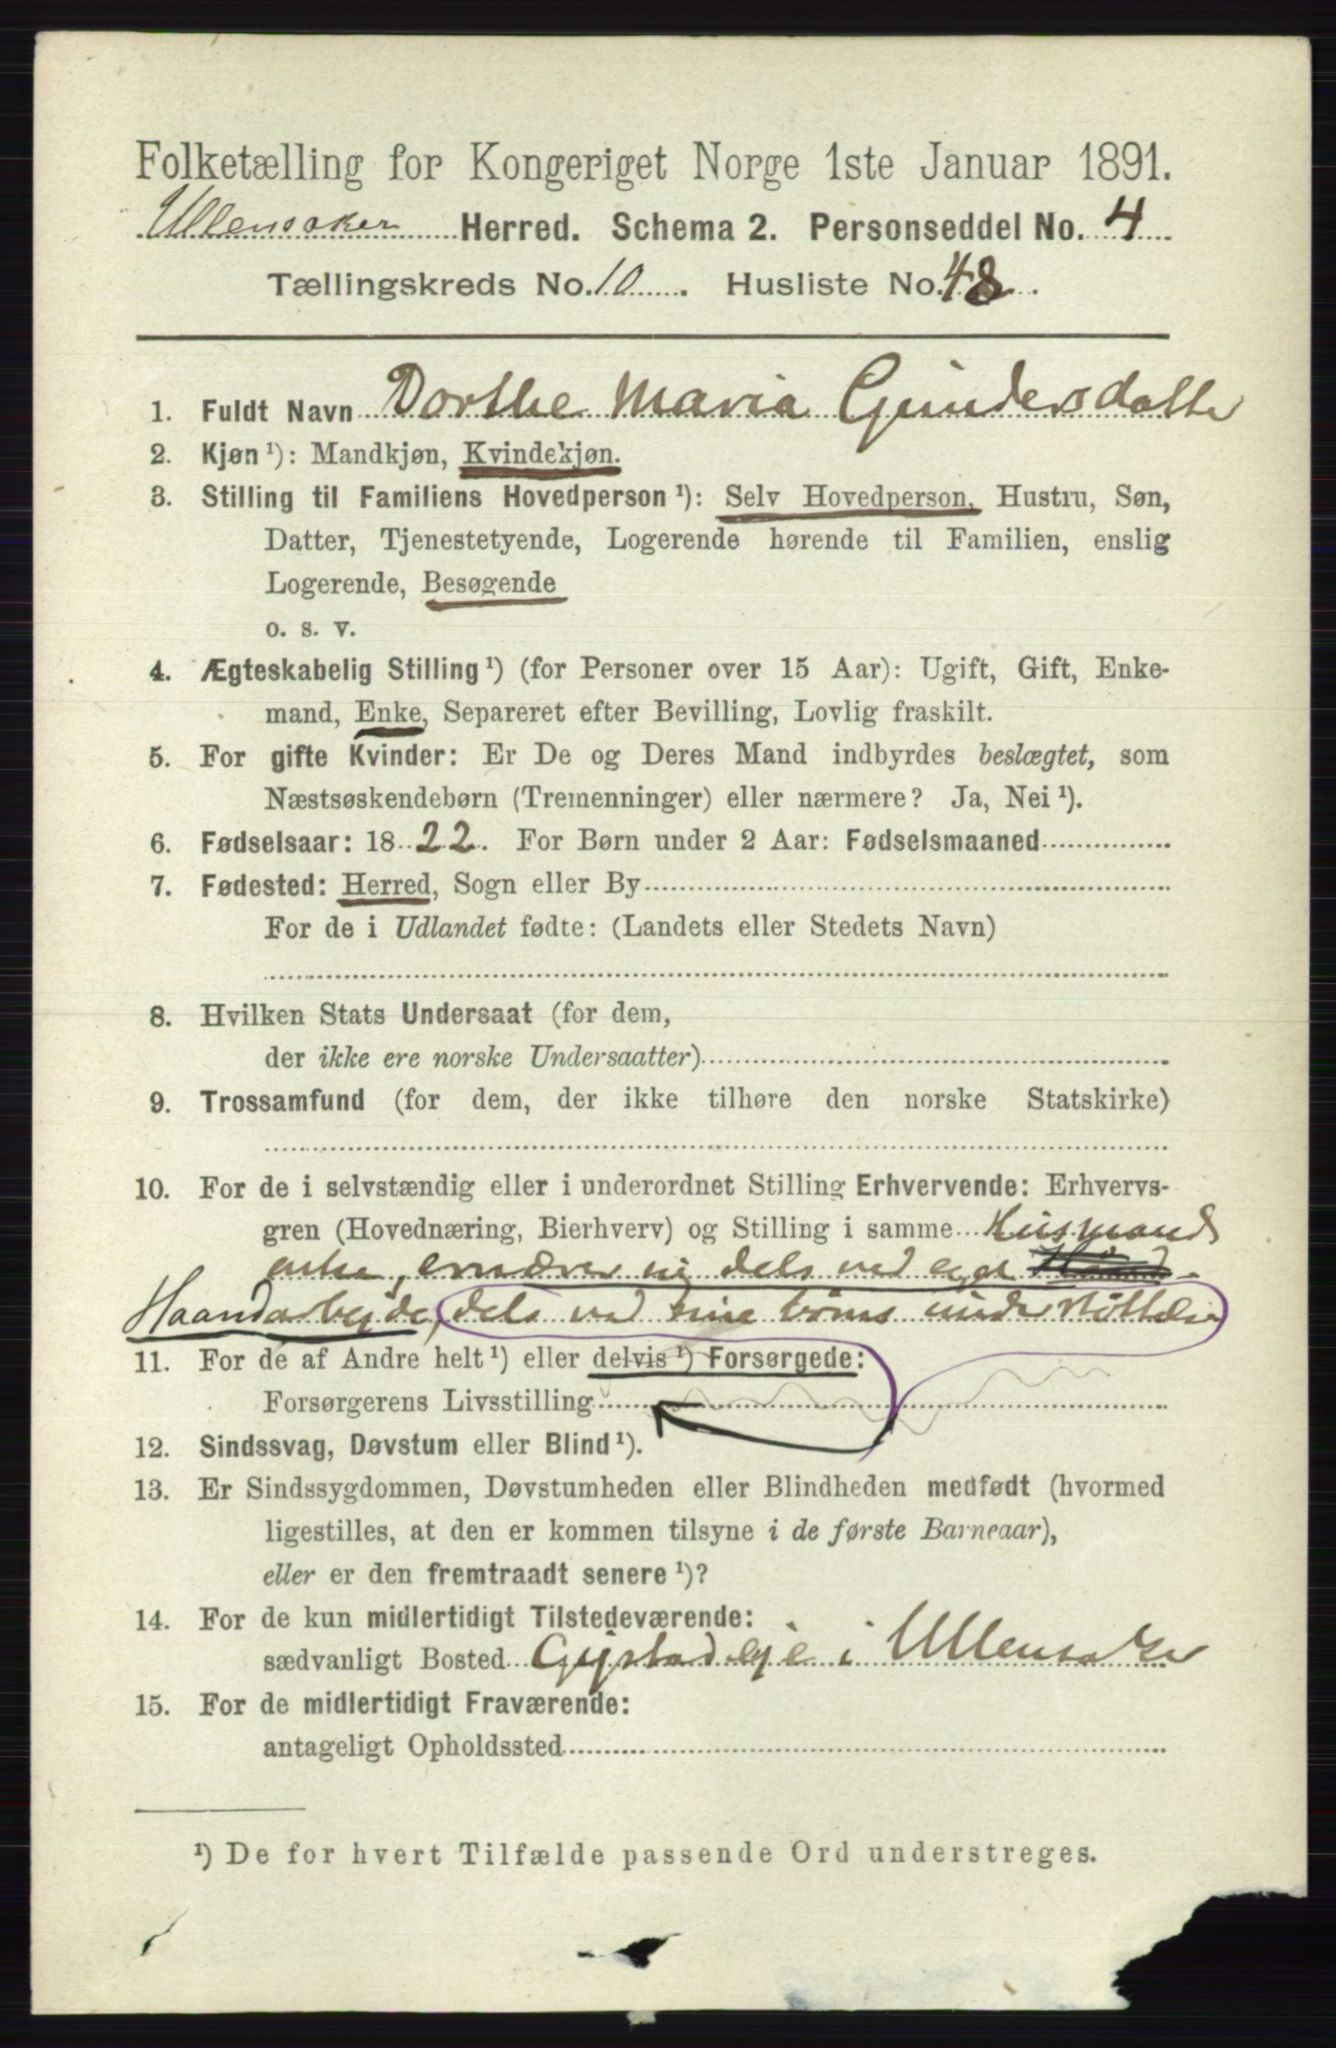 Folketælling for Kongeriget Norge 1ste Januar 1891.
Ullensaker Herred. Schema 2. Personseddel No. 4
Tællingskreds No. 10. Husliste No. 48.
1. Fuldt Navn Dorthe Maria Gundersdatter
2. Kjøn ¹): Mandkjøn, Kvindekjøn.
3. Stilling til Familiens Hovedperson ¹): Selv Hovedperson, Hustru, Søn,
Datter, Tjenestetyende, Logerende hørende til Familien, enslig
Logerende, Besøgende
o. s. v.
4. Ægteskabelig Stilling ¹) (for Personer over 15 Aar): Ugift, Gift, Enke-
mand, Enke, Separeret efter Bevilling, Lovlig fraskilt.
5. For gifte Kvinder: Er De og Deres Mand indbyrdes beslægtet, som
Næstsøskendebørn (Tremenninger) eller nærmere? Ja, Nei ¹).
6. Fødselsaar: 1822. For Børn under 2 Aar: Fødselsmaaned
7. Fødested: Herred, Sogn eller By
For de i Udlandet fødte: (Landets eller Stedets Navn)
8. Hvilken Stats Undersaat (for dem,
der ikke ere norske Undersaatter)
9. Trossamfund (for dem, der ikke tilhøre den norske Statskirke)
10. For de i selvstændig eller i underordnet Stilling Erhvervende: Erhvervs-
gren (Hovednæring, Bierhverv) og Stilling i samme Husmands
enke, ernærer sig dels ved eget Haand-
Haandarbejde, dels ved sine børns understøttelse
11. For de af Andre helt ¹) eller delvis ¹) Forsørgede:
Forsørgerens Livsstilling
12. Sindssvag, Døvstum eller Blind ¹).
13. Er Sindssygdommen, Døvstumheden eller Blindheden medfødt (hvormed
ligestilles, at den er kommen tilsyne i de første Barneaar),
eller er den fremtraadt senere ¹)?
14. For de kun midlertidigt Tilstedeværende:
sædvanligt Bosted Gystadeje i Ullensaker
15. For de midlertidigt Fraværende:
antageligt Opholdssted
¹) De for hvert Tilfælde passende Ord understreges.